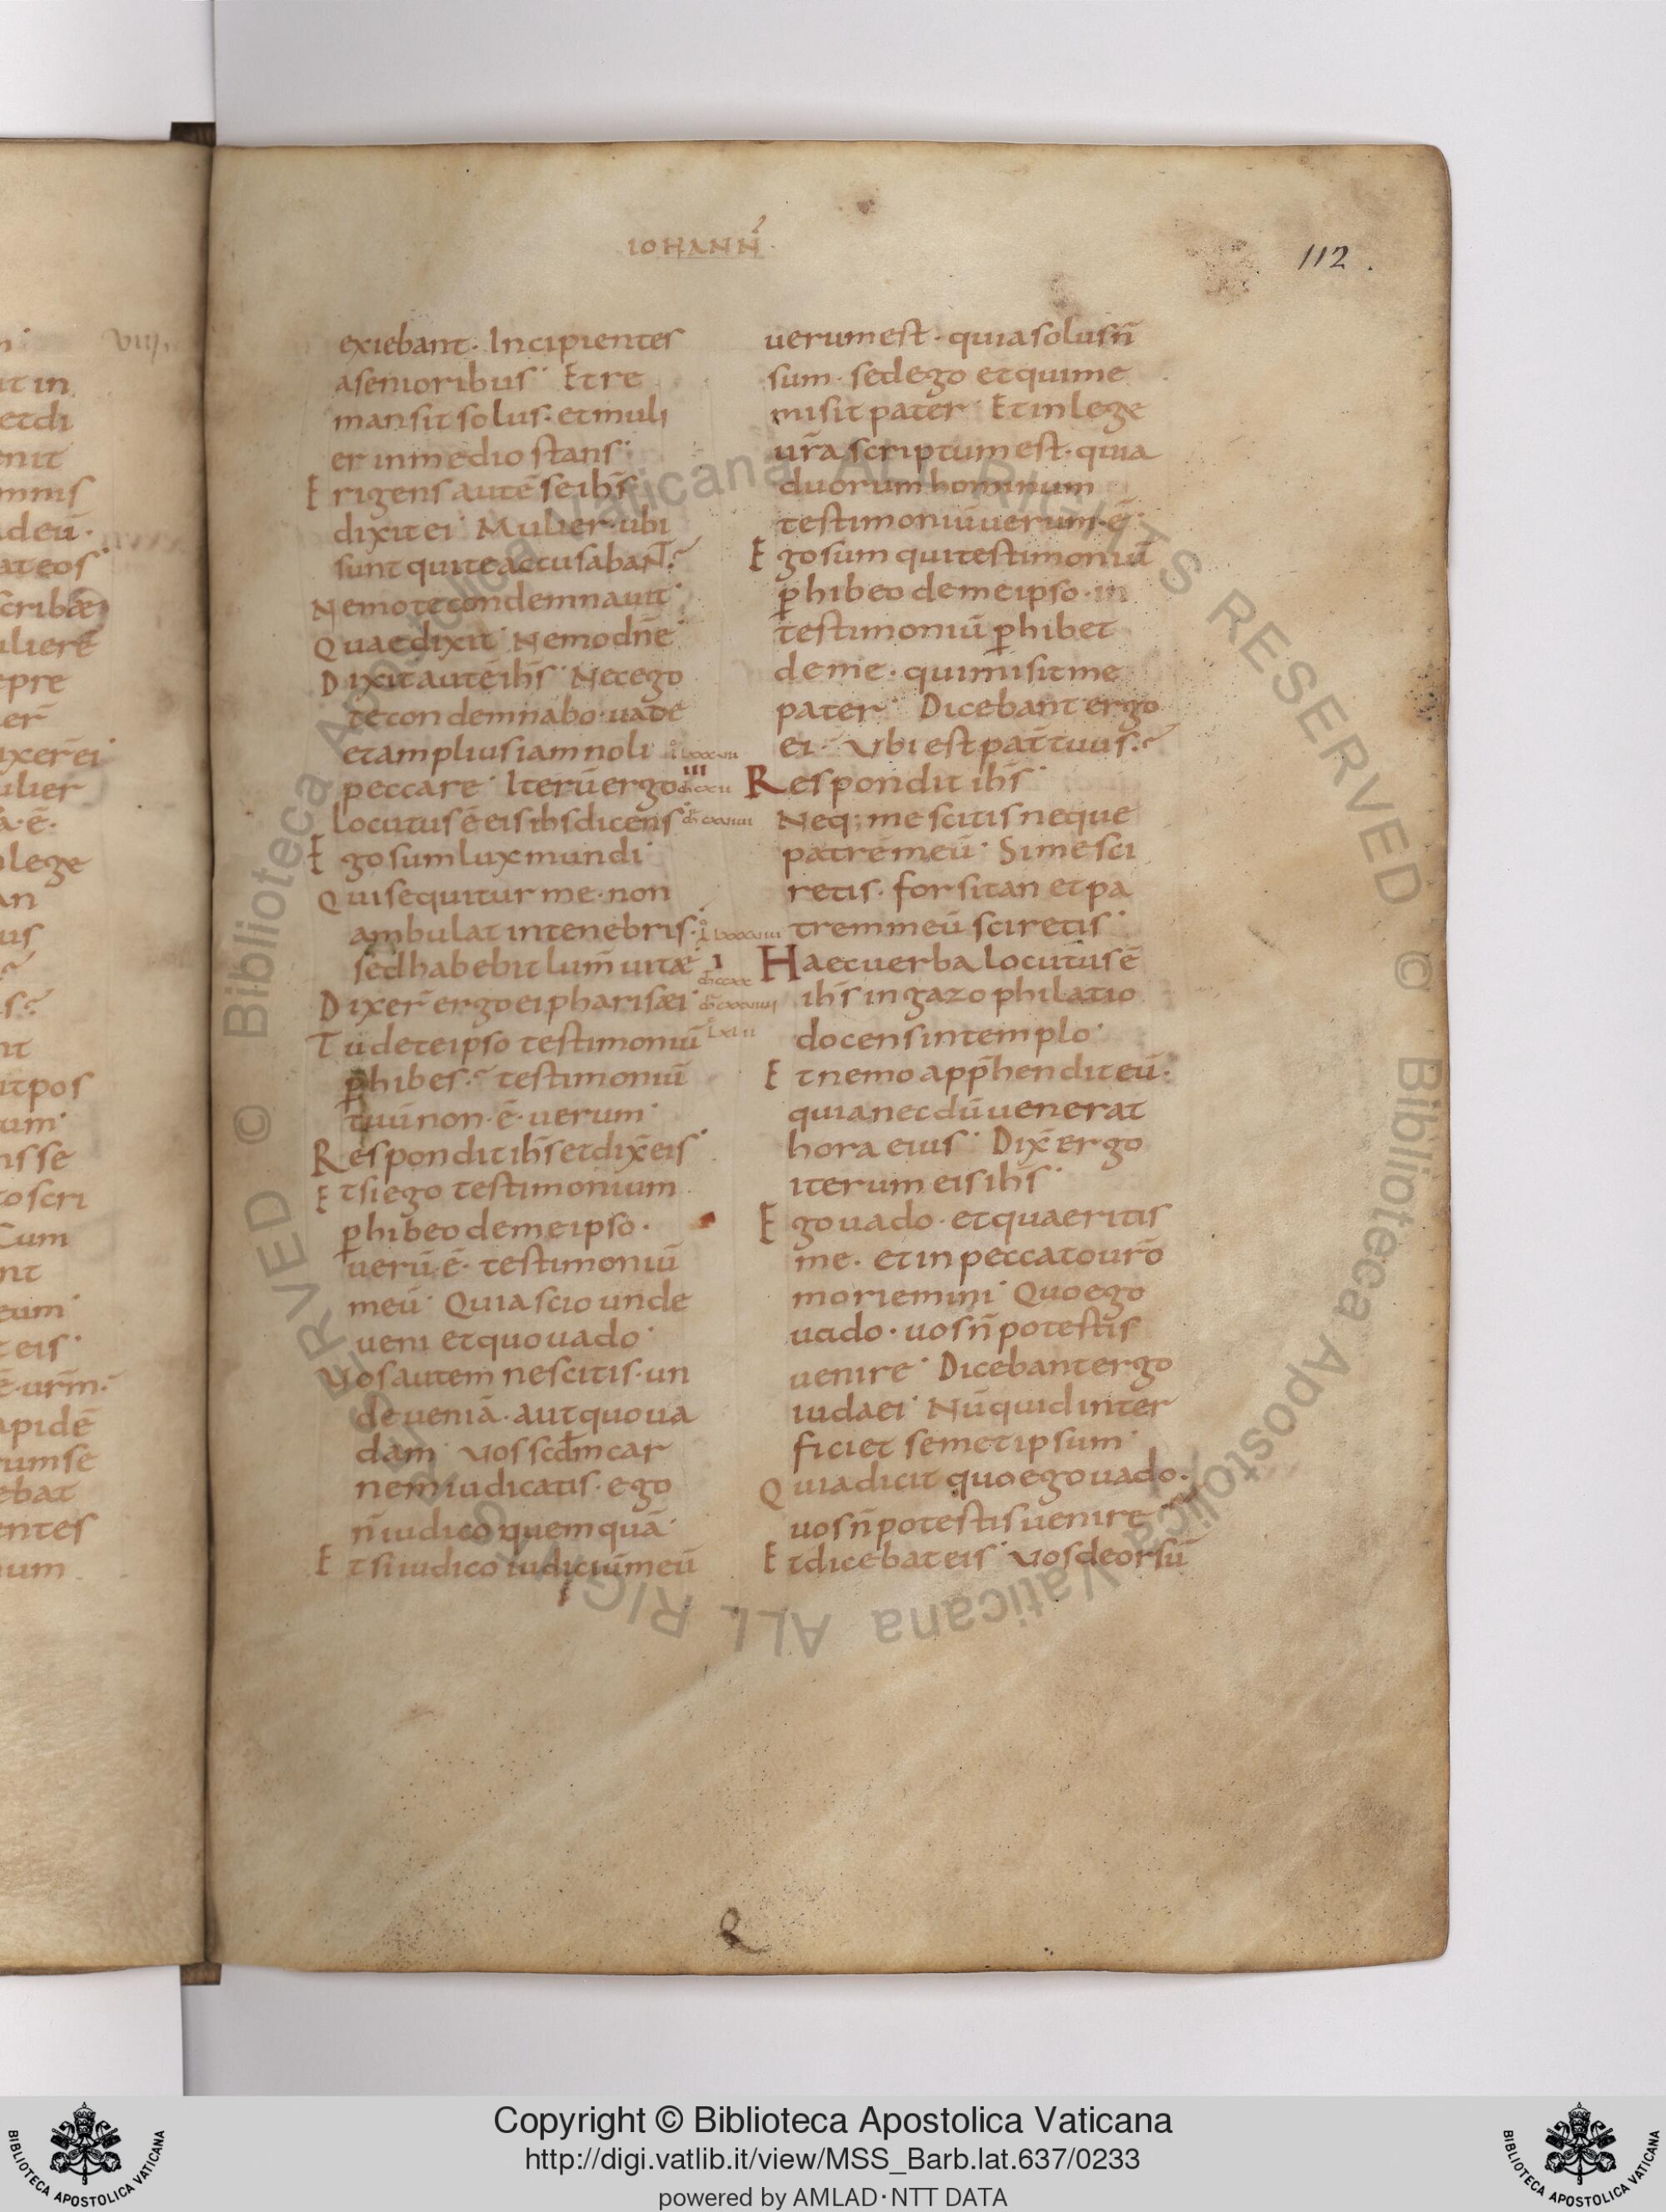 IOHANN̄
112.
exiebant· Incipientes
asenioribus· Etre
mansit solus· et muli
er in medio stans·
Erigens autē se ihs̄
dixit ei· Mulier· ubi
sunt qui te accusabaNT?
Nemo te condemnauit·
Quae dixit· Nemo dn̄e·
Dixit autē ihs̄· Nec ego
te con demnabo· uade
et amplius iam noli
peccare· Iterū ergo
locutus ē eis ihs dicens·
Ego sum lux mundi·
Qui sequitur me· non
ambulat in tenebris·
sed habebit lum̄ uitæ·
Dixer̄ ergo ei pharisæi·
Tu de te ipso testimoniū
ꝑhibes· testimoniū
tuū non· ē· uerum·
Respondit ihs̄ et dix̄ eis·
Et si ego testimonium
ꝑhibeo de me ipso·
uerū· ē· testimoniū
meū· Quia scio unde
ueni et quo uado·
Uos autem nescitis· un
de ueniā· aut quo ua
dam· Uos scdm̄ car
nem iudicatis· ego
n̄ iudico quem quā·
Et si iudico iudiciū meū
uerum est· quia solus n̄
sum· sed ego et qui me
misit pater· Et in lege
ur̄a scriptum est· quia
duorum hominum
testimoniū uerum· ē·
Ego sum qui testimoniū
ꝑhibeo de me ipso·
testimoniū ꝑhibet
de me· qui misit me
pater· Dicebant ergo
ei· Ubi est pat̄ tuus·?
Respondit ihs̄·
Neq; me scitis neque
patrē meū· Si me sci
retis· forsitan et pa
trem meū sciretis·
Haec uerba locutus ē
ihs̄ in gazo philatio
docens in templo·
Et nemo app̄hendit eū·
quia nec dū uenerat
hora eius· Dix̄ ergo
iterum eis ihs̄·
Ego uado· et quaeritis
me· et in peccato ur̄o
moriemini· Quo ego
uado· uos n̄ potestis
uenire· Dicebant ergo
iudaei· Nūquid inter
ficiet semet ipsum·
Quia dicit quo ego uado·
uos n̄ potestis uenire·
Et dicebat eis· Uos deorsū
Copyright © Biblioteca Apostolica Vaticana
http://digi.vatlib.it/view/MSS_Barb.lat.637/0233
powered by AMLAD·NTT DATA
BIBLIOTECA APOSTOLICA VATICANA
BIBLIOTECA APOSTOLICA VATICANA